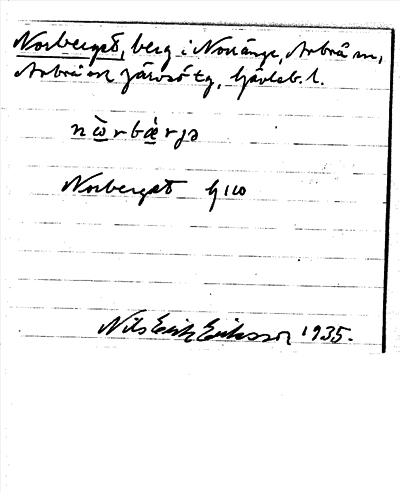 Norberget, berg i Norränge, Arbrå sn,
Arbrå och Järvsö tg, Gävleb. l.
nꞷ̀rbæ̀rjə
Norberget G 110
Nils Erik Eriksson 1935.